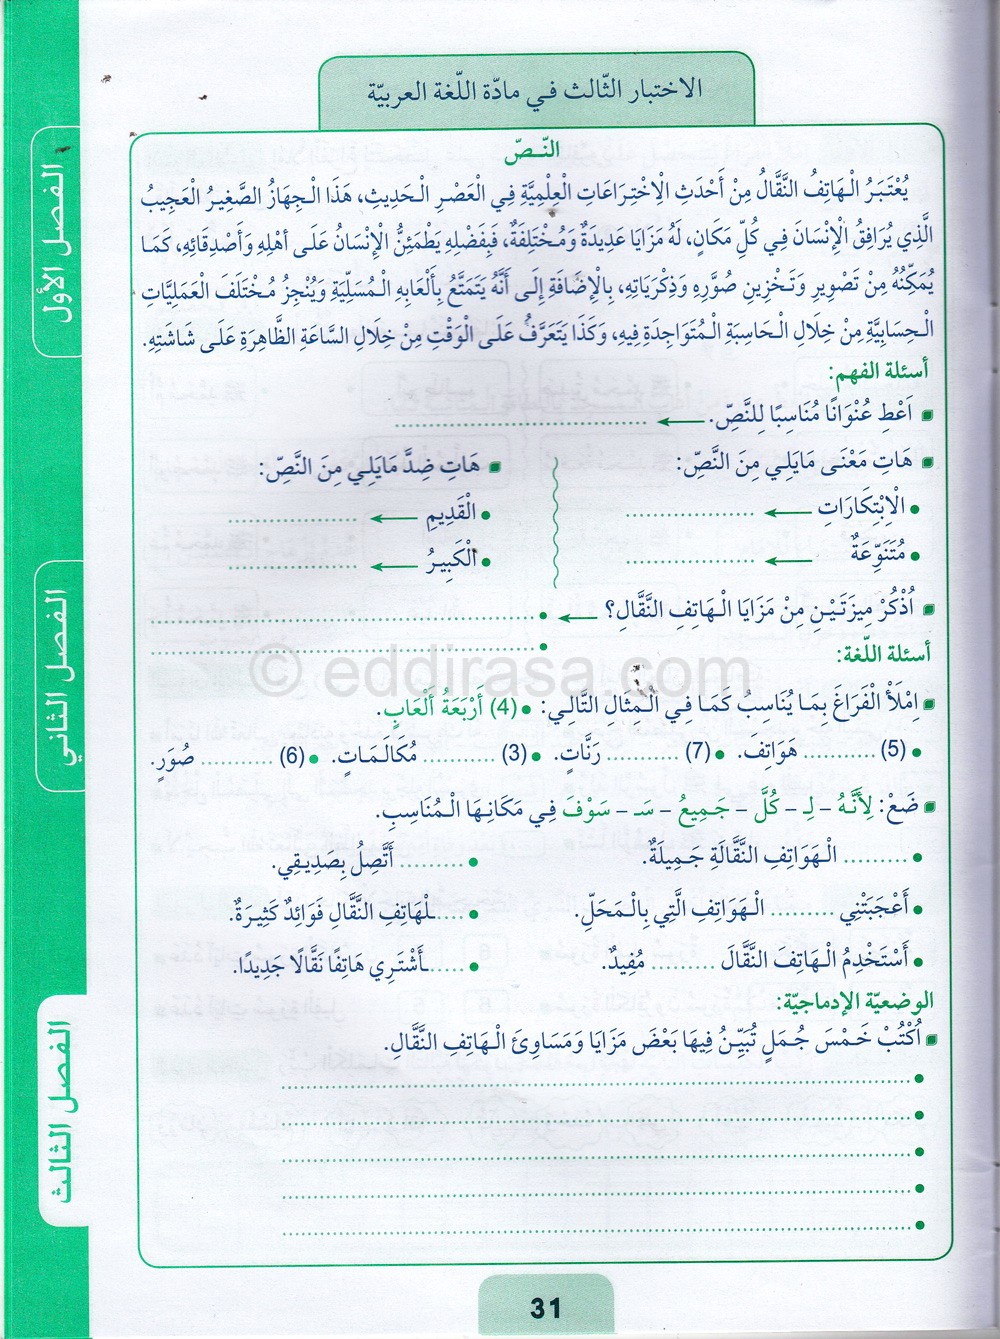 الاختبار الثّالث في مادّة اللّغة العربيّة
النّـصّ
يُعْتَبَرُ الْهَاتِفُ النَّقَّالُ مِنْ أَحْدَثِ الِاخْتِرَاعَاتِ الْعِلْمِيَّةِ فِي الْعَصْرِ الْحَدِيثِ، هَذَا الْجِهَازُ الصَّغِيرُ الْعَجِيبُ
الَّذِي يُرَافِقُ الْإِنْسَانَ فِي كُلِّ مَكَانٍ، لَهُ مَزَايَا عَدِيدَةٌ وَمُخْتَلِفَةٌ، فَبِفَضْلِهِ يَطْمَئِنُّ الْإِنْسَانُ عَلَى أَهْلِهِ وَأَصْدِقَائِهِ، كَمَا
يُمَكِّنُهُ مِنْ تَصْوِيرِ وَتَخْزِينِ صُوَّرِهِ وَذِكْرَيَاتِهِ، بِالْإِضَافَةِ إِلَى أَنَّهُ يَتَمَتَّعُ بِأَلْعَابِهِ الْمُسَلِّيَةِ وَيُنْجِزُ مُخْتَلَفَ الْعَمَلِيَّاتِ
الْحِسَابِيَّةِ مِنْ خِلَالِ الْحَاسِبَةِ الْمُتَوَاجِدَةِ فِيهِ، وَكَذَا يَتَعَرَّفُ عَلَى الْوَقْتِ مِنْ خِلَالِ السَّاعَةِ الظَّاهِرَةِ عَلَى شَاشَتِهِ.
أسئلة الفهم:
اَعْطِ عُنْوَانًا مُنَاسِبًا لِلنَّصِّ.
هَاتِ مَعْنَى مَايَلِي مِنَ النَّصِّ:
هَاتِ ضِدَّ مَايَلِي مِنَ النَّصِّ:
• الْاِبْتِكَارَاتِ
• الْقَدِيمِ
• مُتَنَوِّعَةٌ
• الْكَبِيرُ
اُذْكُرْ مِيزَتَيْنِ مِنْ مَزَايَا الْهَاتِفِ النَّقَّالِ؟
© eddirasa.com
أسئلة اللّغة:
اِمْلَأْ الْفَرَاغَ بِمَا يُنَاسِبُ كَمَا فِي الْمِثَالِ التَّالِي: • (4) أَرْبَعَةُ أَلْعَابٍ.
(5) ............ هَوَاتِف. • (7) ......... رَنَّاتٍ. • (3) ............ مُكَالَمَاتٍ. • (6) ............ صُوَرٍ.
ضَعْ: لِأَنَّهُ – لِـ – كُلَّ – جَمِيعُ – سَـ – سَوْفَ فِي مَكَانِهَا الْمُنَاسِبِ.
• .......... الْهَوَاتِفِ النَّقَّالَةِ جَمِيلَةٌ.
• .......... أَتَّصِلُ بِصَدِيقِي.
• أَعْجَبَتْنِي .......... الْهَوَاتِفِ الَّتِي بِالْمَحَلِّ.
• ......لْهَاتِفِ النَّقَّالِ فَوَائِدٌ كَثِيرَةٌ.
• أَسْتَخْدِمُ الْهَاتِفَ النَّقَّالَ .......... مُفِيدٌ.
• ......ـأَشْتَرِي هَاتِفًا نَقَّالًا جَدِيدًا.
الوضعيّة الإدماجيّة:
اُكْتُبْ خَمْسَ جُمَلٍ تُبَيِّنُ فِيهَا بَعْضَ مَزَايَا وَمَسَاوِئَ الْهَاتِفِ النَّقَّالِ.
31
الفصل الأول
الفصل الثاني
الفصل الثالث